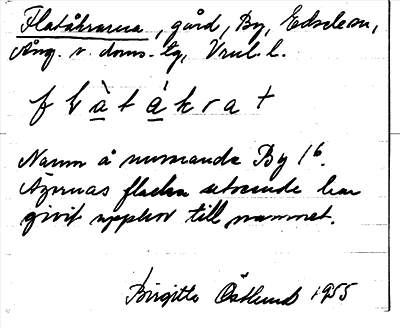 Flatåkrarna, gård, By, Edsele sn,
Ång. v. doms. tg, Vrul. l.
f l à t á k r a t
Namn å nuvarande By 1⁶.
Ägornas flacka utseende har
givit upphov till namnet.
Birgitta Östlund 1955